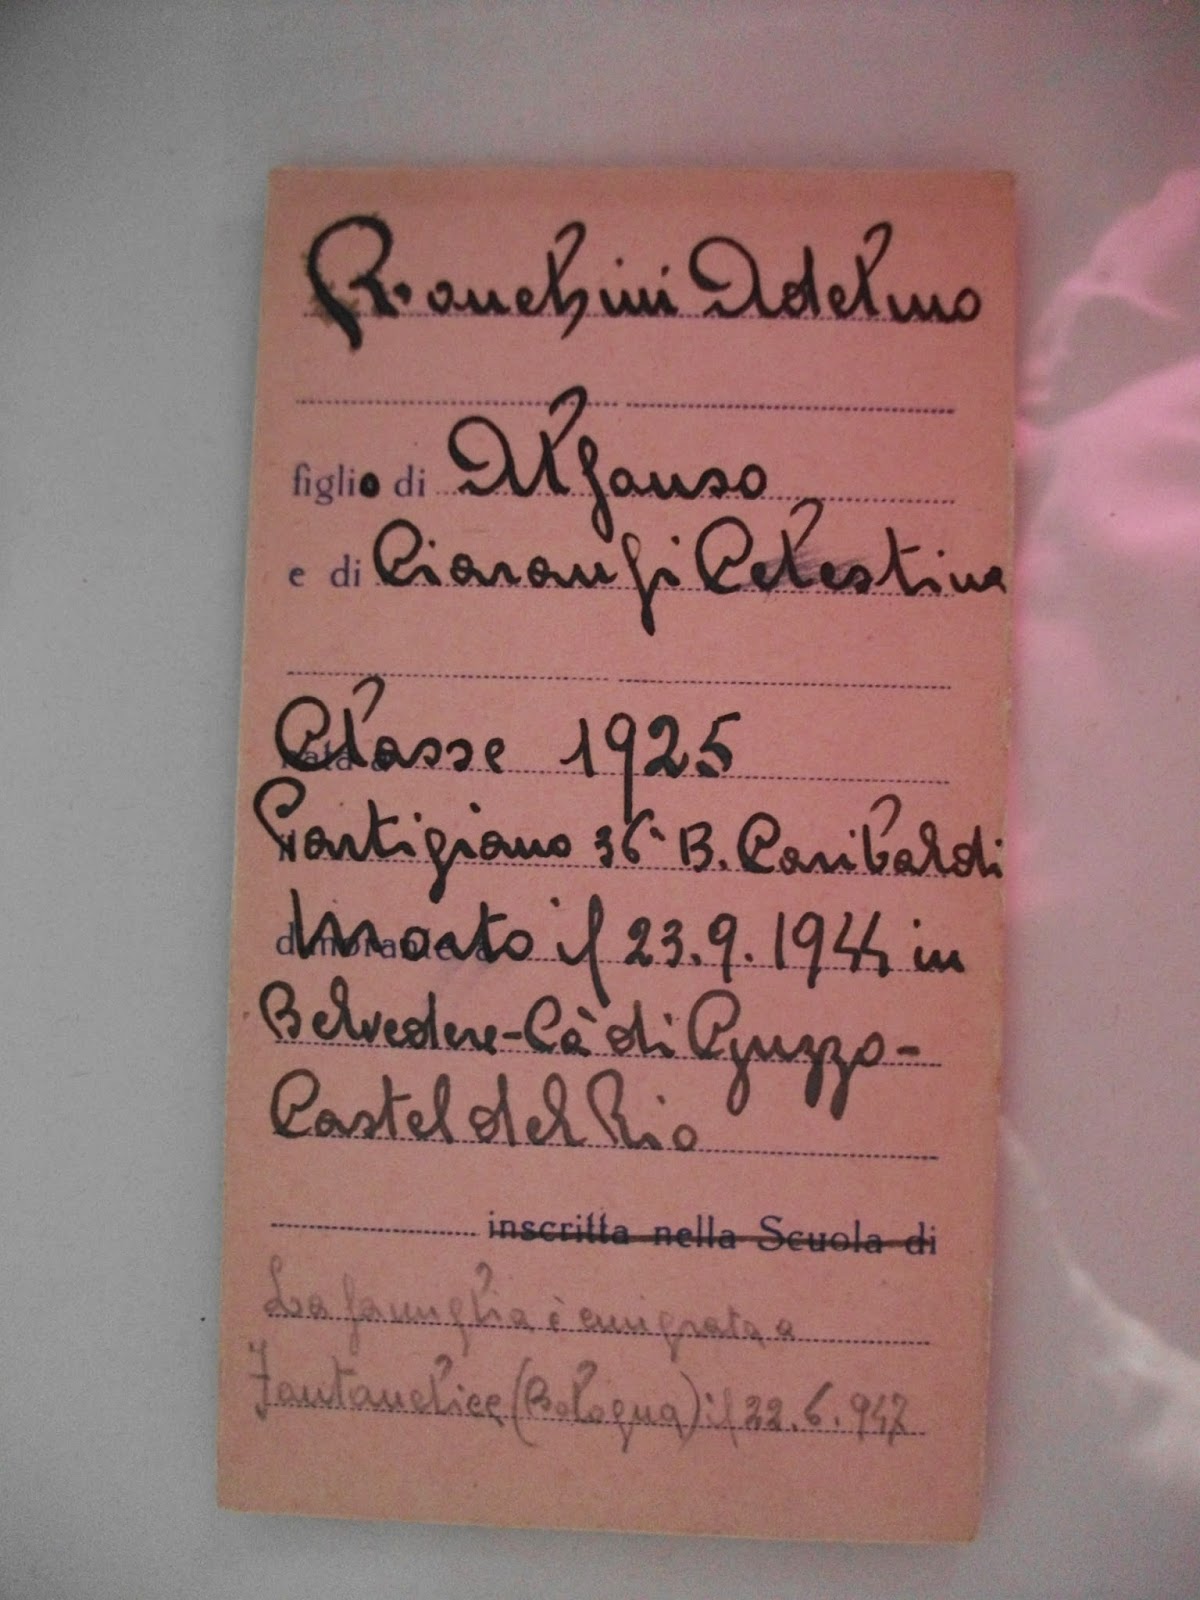 Ronchini Adelmo
figlio di Alfonso
e di Ciaranfi Celestina
Classe 1925
Partigiano 36ª B. Garibaldi
Morto il 23.9.1944 in
Belvedere-Cà di Guzzo-
Castel del Rio
inscritta nella Scuola di
La famiglia è emigrata a
Fontanelice (Bologna) il 22.6.947